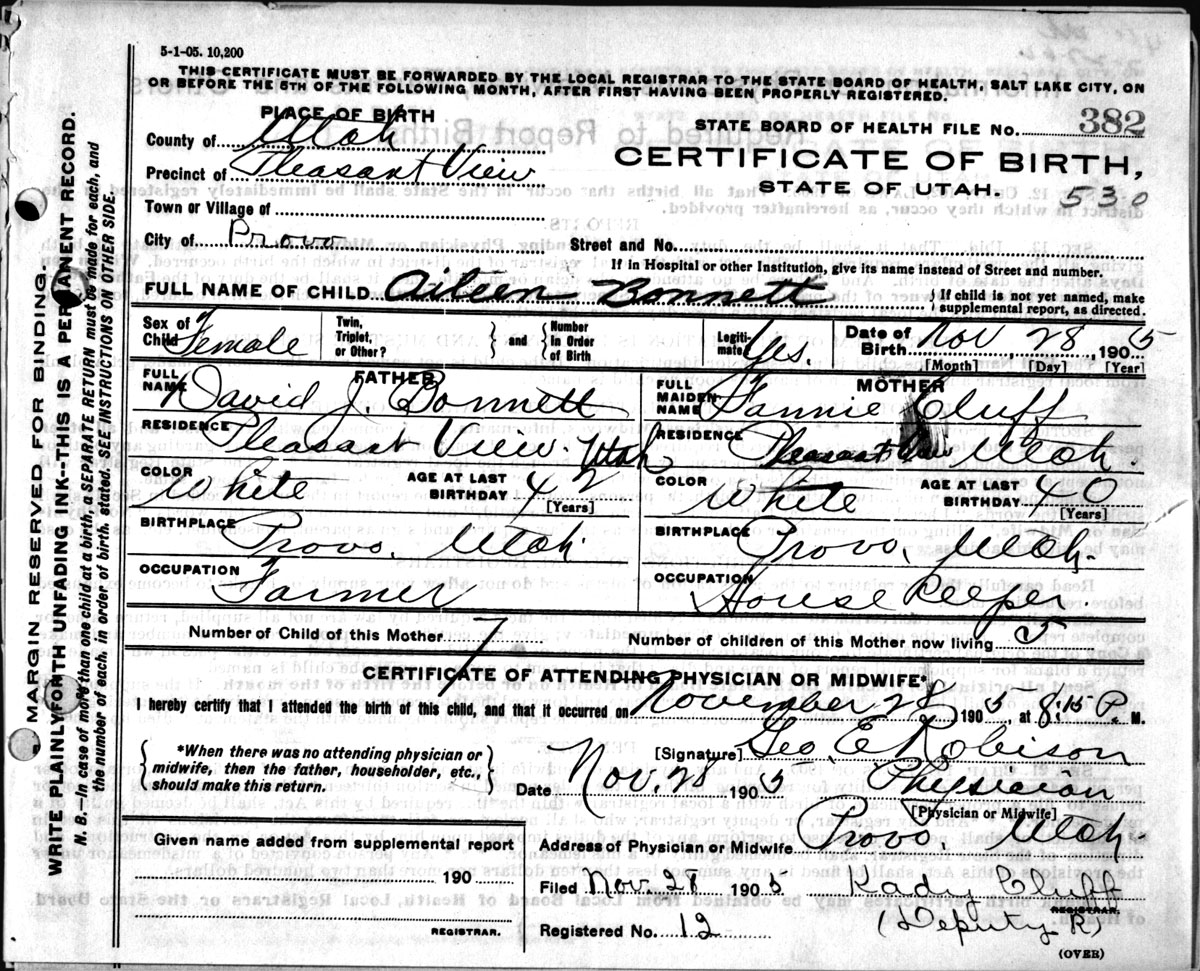 5-1-05. 10,200
THIS CERTIFICATE MUST BE FORWARDED BY THE LOCAL REGISTRAR TO THE STATE BOARD OF HEALTH, SALT LAKE CITY, ON
OR BEFORE THE 5TH OF THE FOLLOWING MONTH, AFTER FIRST HAVING BEEN PROPERLY REGISTERED.
PLACE OF BIRTH
STATE BOARD OF HEALTH FILE No. 382
County of Utah
CERTIFICATE OF BIRTH,
Precinct of Pleasant View
STATE OF UTAH. 530
Town or Village of
City of Provo Street and No.
If in Hospital or other Institution, give its name instead of Street and number.
FULL NAME OF CHILD Aileen Bonnett { If child is not yet named, make supplemental report, as directed.
Sex of Child Female Twin, Triplet, or Other? } and { Number in Order of Birth Legitimate Yes. Date of Birth Nov 28, 1905
[Month] [Day] [Year]
FATHER MOTHER
FULL NAME David J. Bonnett FULL MAIDEN NAME Fannie Cluff
RESIDENCE Pleasant View. Utah RESIDENCE Pleasant View Utah.
COLOR White AGE AT LAST BIRTHDAY 42 [Years] COLOR White AGE AT LAST BIRTHDAY 40 [Years]
BIRTHPLACE Provo, Utah BIRTHPLACE Provo, Utah.
OCCUPATION Farmer OCCUPATION House Keeper.
Number of Child of this Mother 7 Number of children of this Mother now living 5
CERTIFICATE OF ATTENDING PHYSICIAN OR MIDWIFE*
I hereby certify that I attended the birth of this child, and that it occurred on November 28 1905, at 8:15 P. M.
{ *When there was no attending physician or midwife, then the father, householder, etc., should make this return. }
[Signature] Geo. E. Robison
Date Nov. 28 1905 Physician
[Physician or Midwife]
Given name added from supplemental report
Address of Physician or Midwife Provo, Utah.
190
Filed Nov. 28 1905 Kady Cluff
REGISTRAR.
REGISTRAR.
Registered No. 12 (Deputy R)
(OVER)
MARGIN RESERVED FOR BINDING.
WRITE PLAINLY FORTH UNFADING INK--THIS IS A PERMANENT RECORD.
N. B.--In case of more than one child at a birth, a SEPARATE RETURN must be made for each, and
the number of each, in order of birth, stated. SEE INSTRUCTIONS ON OTHER SIDE.